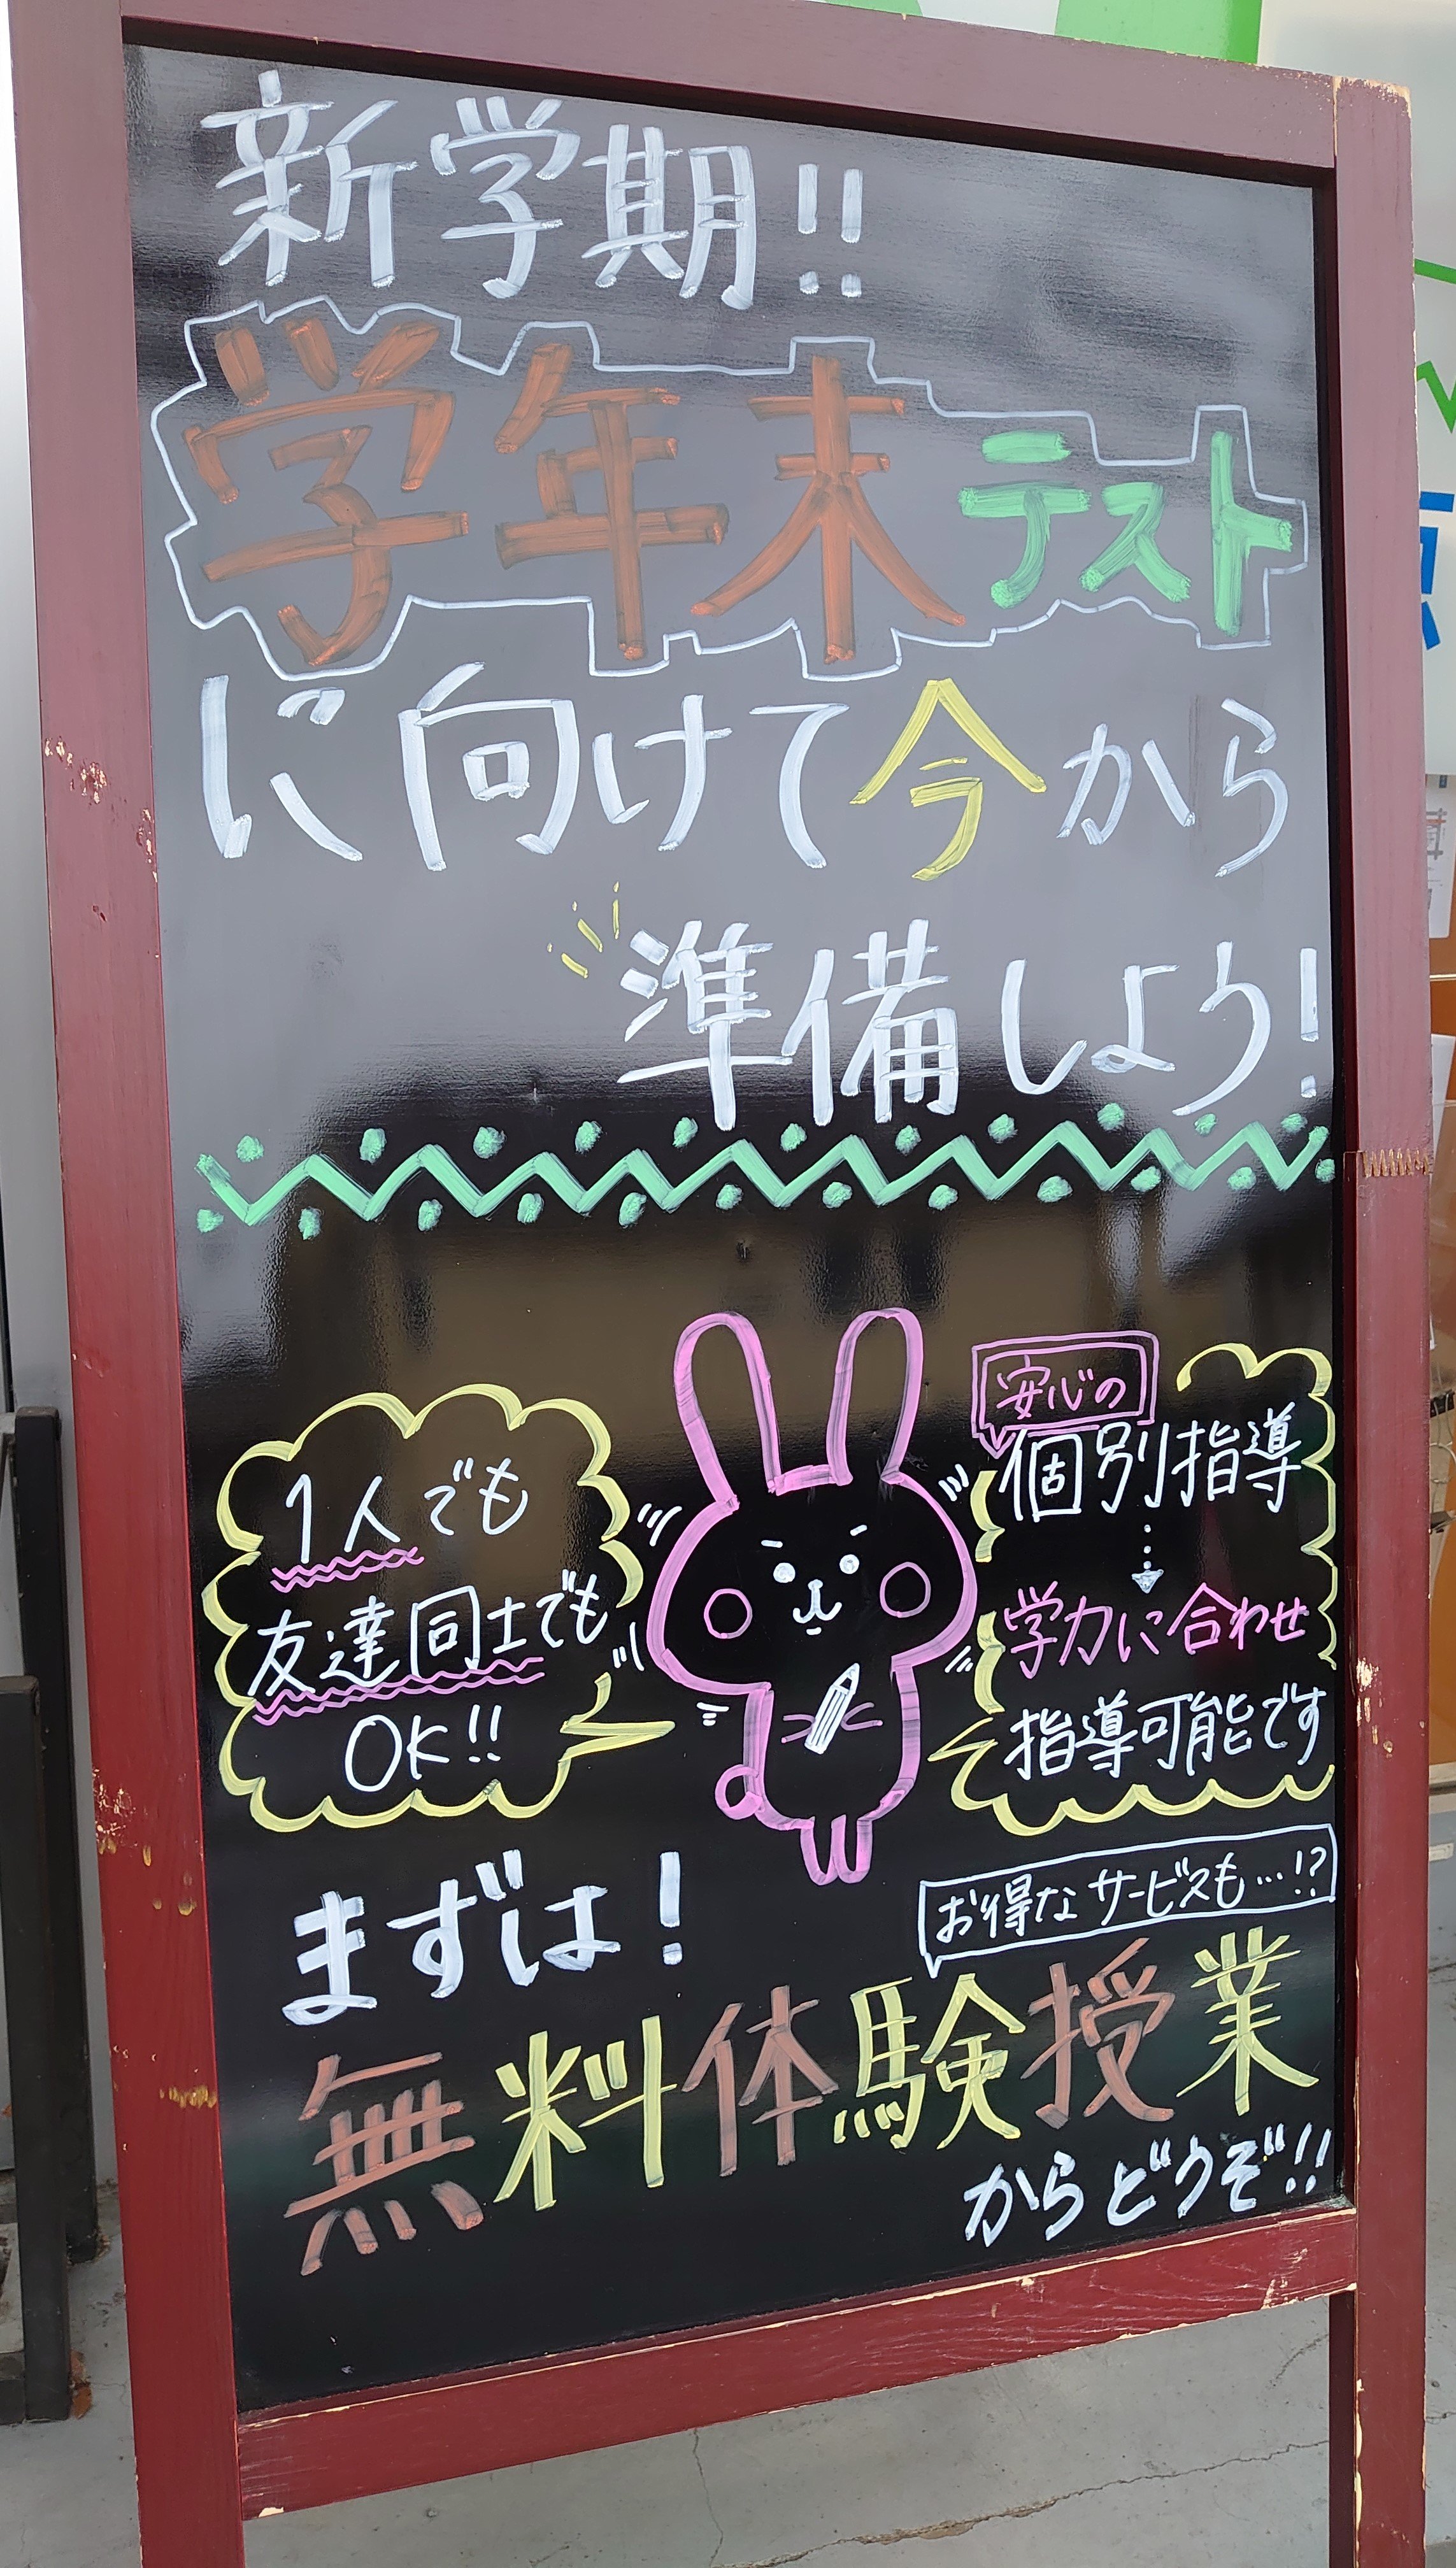 新学期!!
学年末テスト
に向けて今から
準備しよう!
1人でも
友達同士でも
OK!!
安心の
個別指導
学力に合わせ
指導可能です
まずは!
お得なサービスも…!?
無料体験授業
からどうぞ!!